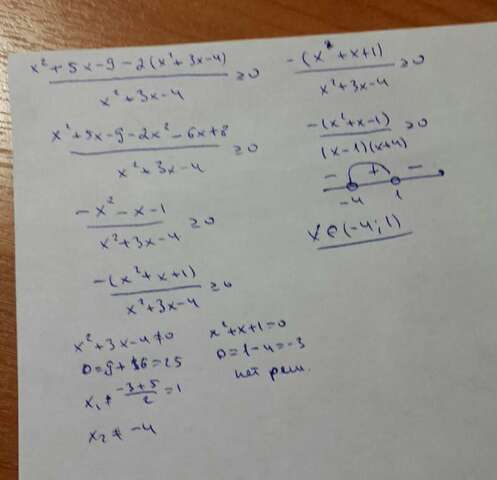 x² + 5x - 9 - 2(x² + 3x - 4) / x² + 3x - 4 ≥ 0
x² + 5x - 9 - 2x² - 6x + 8 / x² + 3x - 4 ≥ 0
-x² - x - 1 / x² + 3x - 4 ≥ 0
-(x² + x + 1) / x² + 3x - 4 ≥ 0
x² + 3x - 4 ≠ 0
D = 9 + 16 = 25
x₁ ≠ -3 + 5 / 2 = 1
x₂ ≠ -4
x² + x + 1 = 0
D = 1 - 4 = -3
нет реш.
-(x² + x + 1) / x² + 3x - 4 ≥ 0
-(x² + x - 1) / (x - 1)(x + 4) ≥ 0
- + -
-4 1
x ∈ (-4; 1)